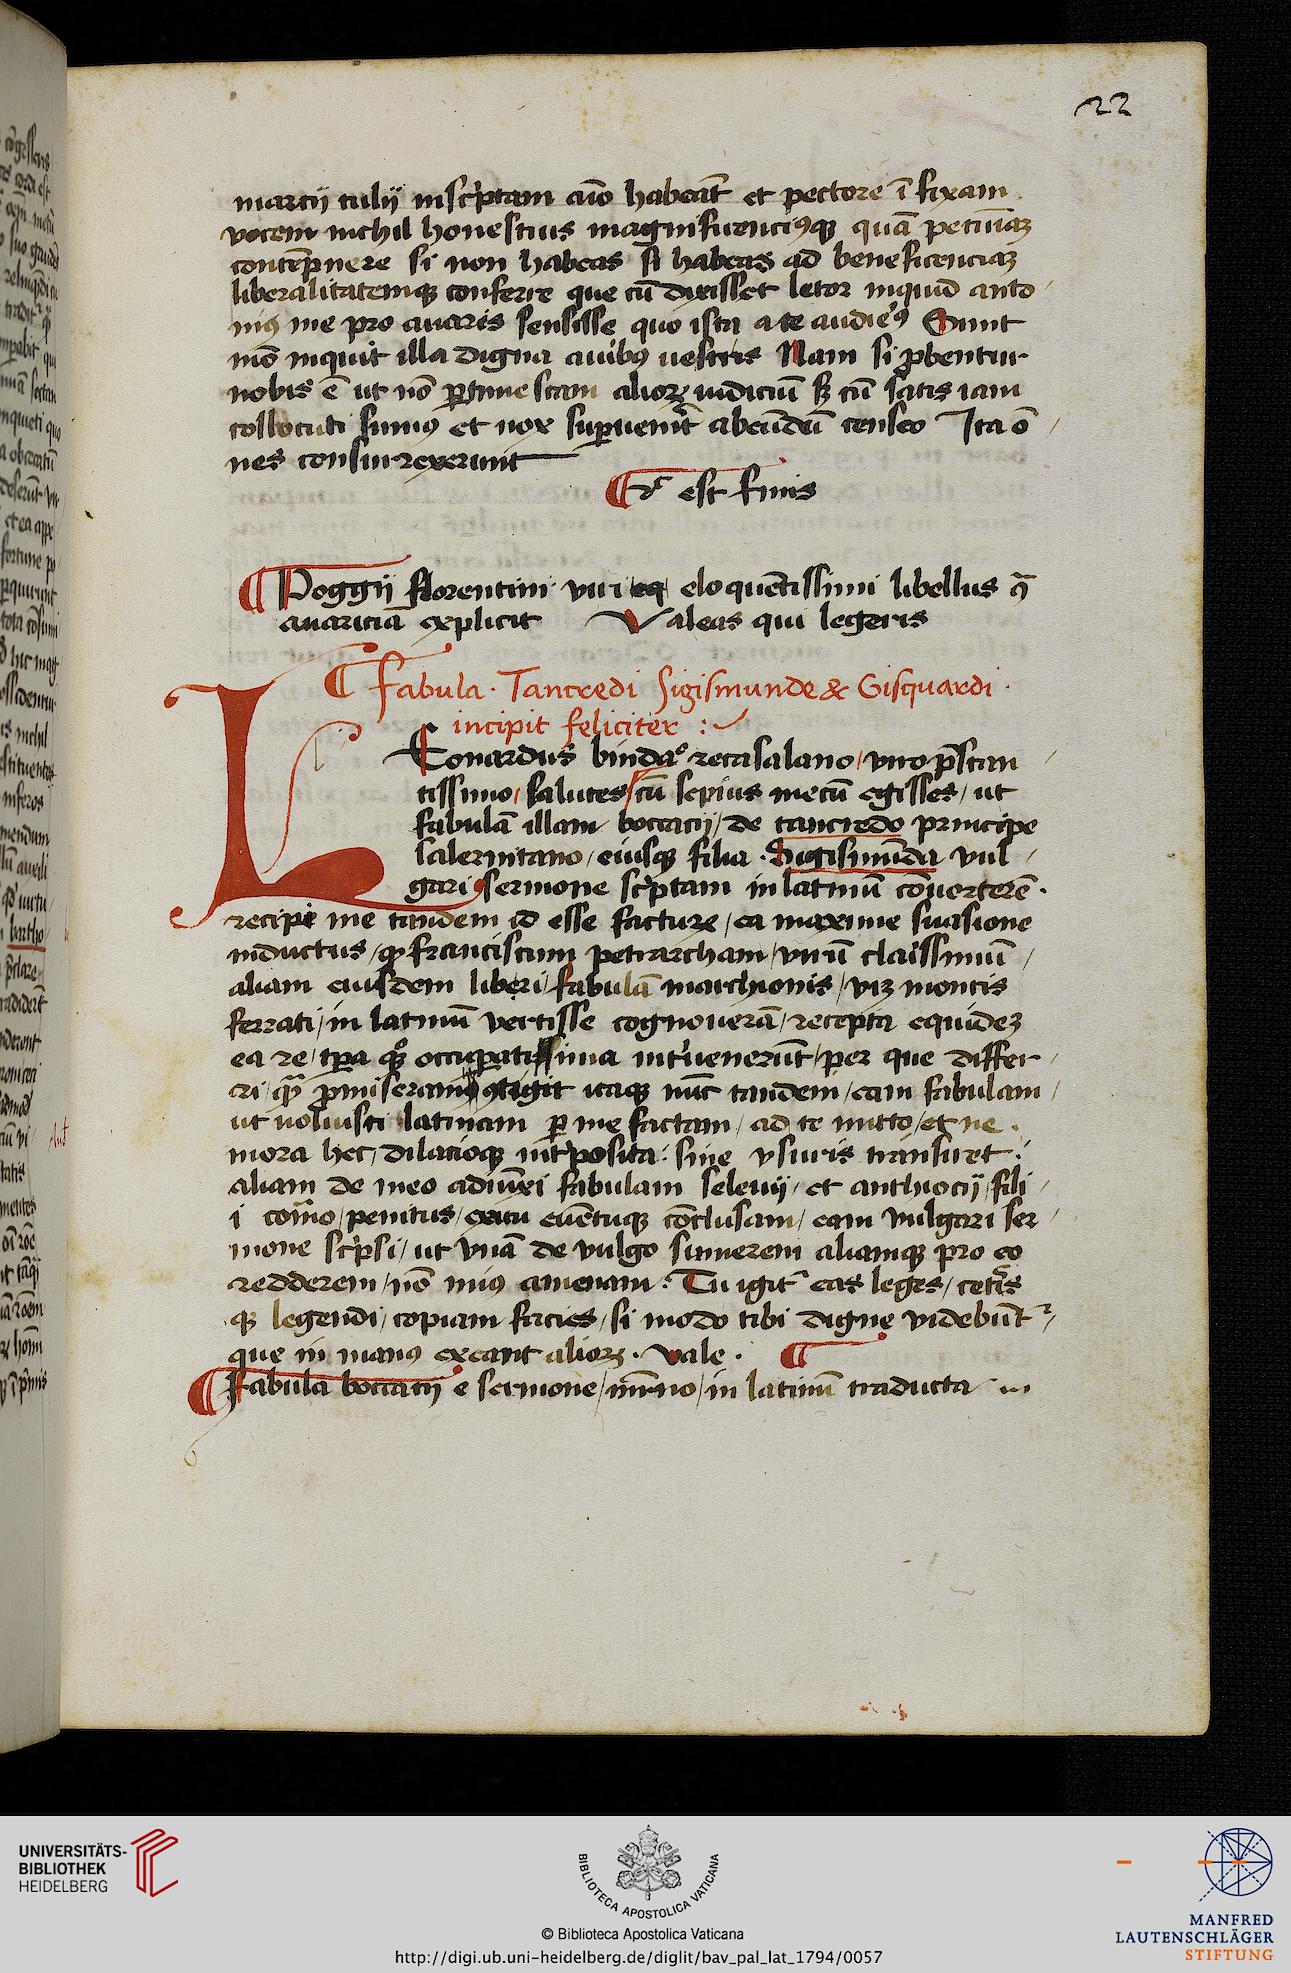 22
marcij tulij inscͥptam aīo habeāt et pectore ī fixam
vocem nichil honestius magnificenciꝰqꝫ quā pecuniaꝫ
contēpnere si non habeas si habeas ad beneficenciaꝫ
liberalitatemqꝫ conferre que cū dixisset letor inquid anto
niꝰ me pro auaris sensisse quo ista a te audieꝰ Sunt
īmo inquit illa digna auibꝰ uestris Nam si ꝓbentur
nobis ē ut nō ꝑtimescam alioꝝ iudiciū sꝫ cū satis iam
collocuti sumꝰ et nox suꝑuenit abeūdū censeo Ita ō
nes consurrexerunt
Et sͨ est finis
Poggij florentini viri eloquētissimi libellus ꝯͣ
auariciā explicit Valeas qui legeris
Fabula · Tancredi Sigismunde & Gisquardi ·
incipit feliciter :
LEonardus bindaͦ recasalano / viro p̄stan
tissimo / salutes / cū sepius mecū egisses / ut
fabulā illam boccacij / de tancredo principe
salernitano / eiusqꝫ filia · Sigismūda vul
gari sermone scͥptam in latinū cōuorterē ·
recipi me tandem id esse facture / ea maxime suasione
inductus / ꝙ franciscum petrarcham / virū claͥssimū /
aliam eiusdem liberi / fabulā marchionis / vꝫ montis
ferrati / in latinū vertisse cognouerā / recepta equideꝫ
ea re / tꝑa qͦꝫ occupatissima intͥuenerūt / per que differ
ri / qͣꝫ ꝓmiseram ꝯtigit itaqꝫ nūc tandem / eam fabulam
ut uoluisti latinam ꝑ me factam / ad te mitto / et ne ·
mora hec / dilacioqꝫ intͥposita : sine vsuris transiret :
aliam de meo adiūxi fabulam seleuij / et anthiocij / fili
i cōtrͣio / penitus / exitu euētuqꝫ cōclusam / eam vulgari ser
mone scͥpsi / ut vnā de vulgo sumerem aliamqꝫ pro eo
redderem / nō minꝰ amenam · Tu igitͬ eas leges / ceterͥs
qꝫ legendi / copiam facies / si modo tibi digne videbūtͬ /
que in manꝰ exeant alioꝝ · Vale ·
Fabula boccacij e sermone / nr̄no / in latinū traducta ...
UNIVERSITÄTS-
BIBLIOTHEK
HEIDELBERG
BIBLIOTECA APOSTOLICA VATICANA
© Biblioteca Apostolica Vaticana
http://digi.ub.uni-heidelberg.de/diglit/bav_pal_lat_1794/0057
MANFRED
LAUTENSCHLÄGER
STIFTUNG